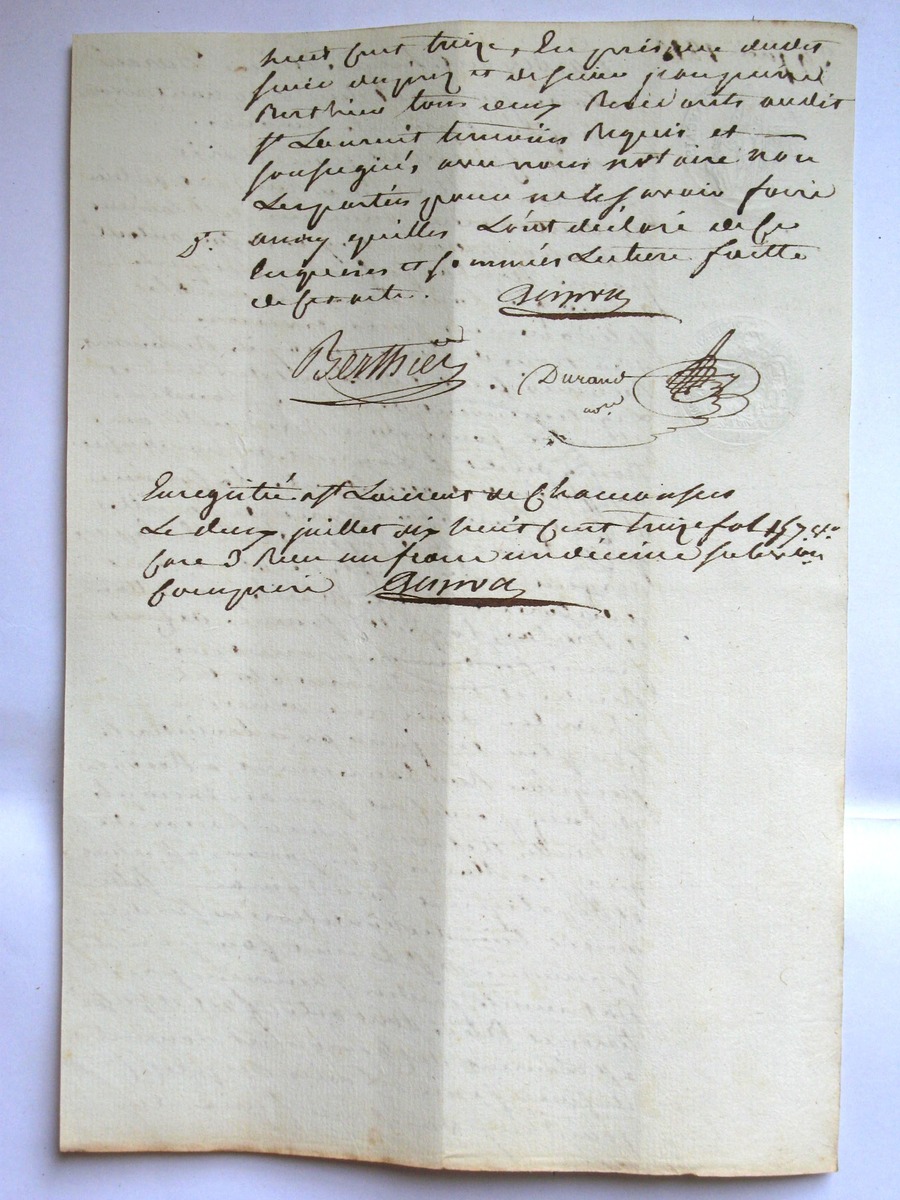 huit cent treize, En présence dudit
et de Sieur
Berthier tous deux Residants audit
st Laurent temoins Requis et
soussignés avec nous notaire non
Les parties pour ne le savoir faire
ainsy quelles L'ont déclaré de ce
Enquises et sommées Lecture faitte
de ce acte.
Berthier
Durand
nore
Enregistré a st Laurent de Chamousset
Le deux juillet dix huit cent treize fol 157 vo
Case 3 Recu un franc un décime subvon
Comprise